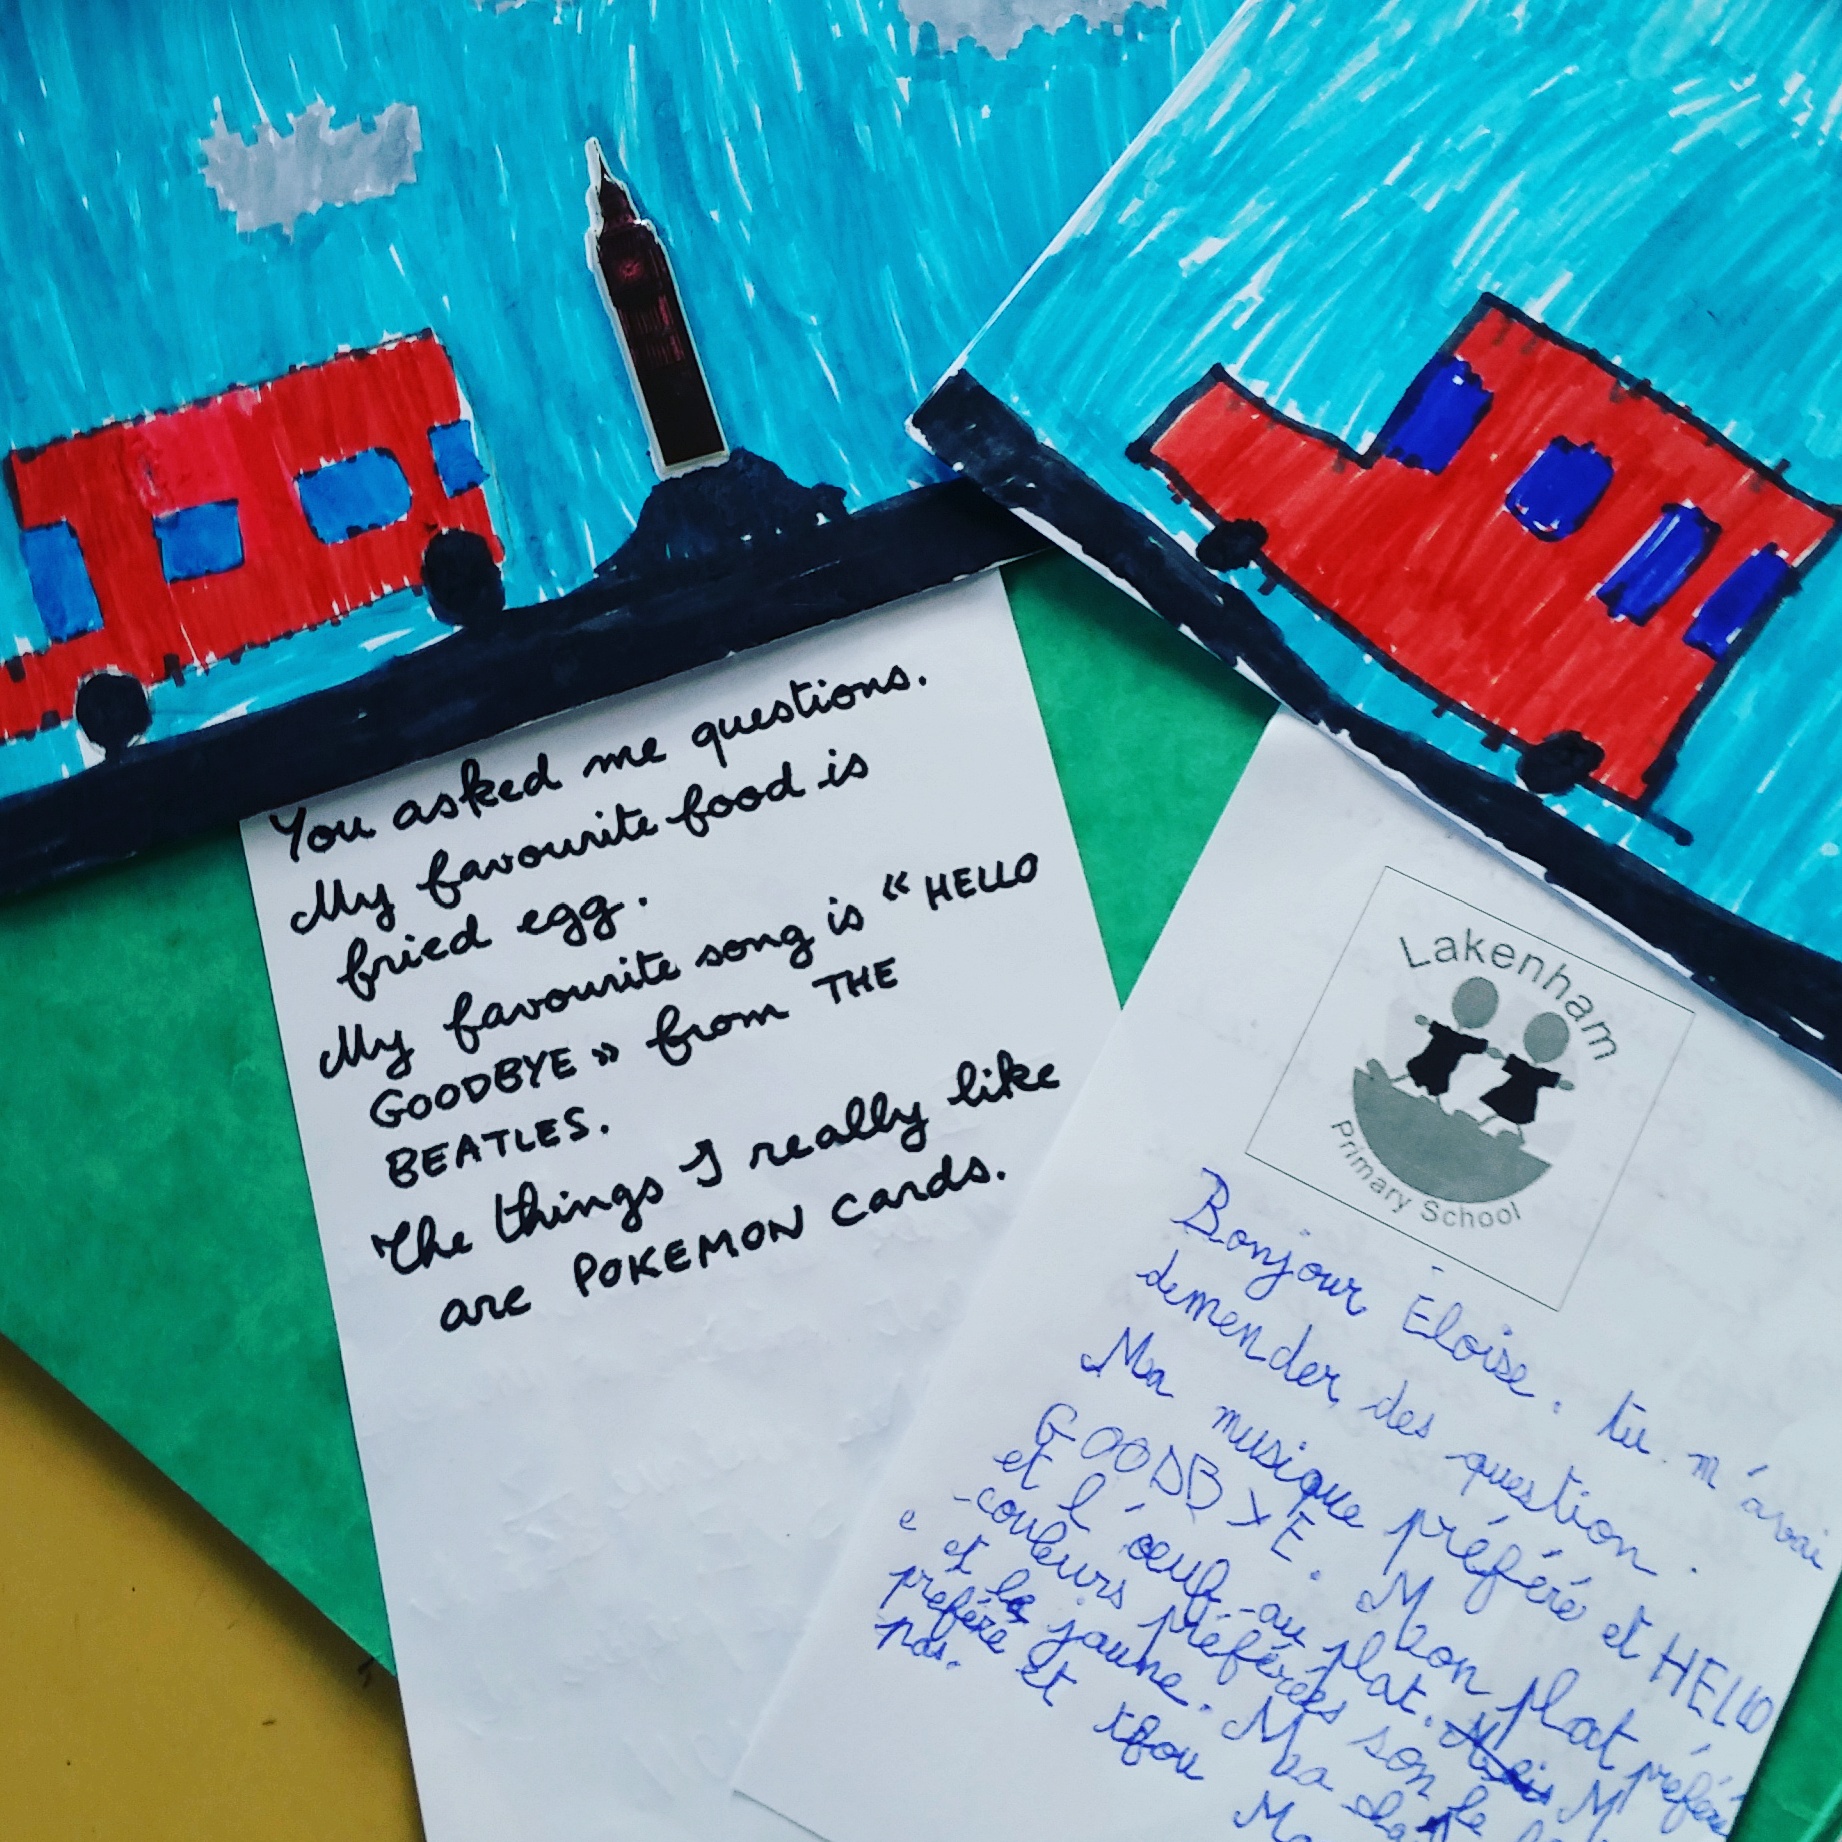 You asked me questions.
My favourite food is
fried egg.
My favourite song is « HELLO
GOODBYE » from THE
BEATLES.
The things I really like
are POKEMON cards.
Lakenham
Primary School
Bonjour Eloïse. tu m'avai
demender des question.
Ma musique préféré et HELLO
GOODBYE. Mon plat préféré
et l'œuf-au plat. M
couleurs préférées son le
et le jaune. Ma
préféré et
pas. Ma